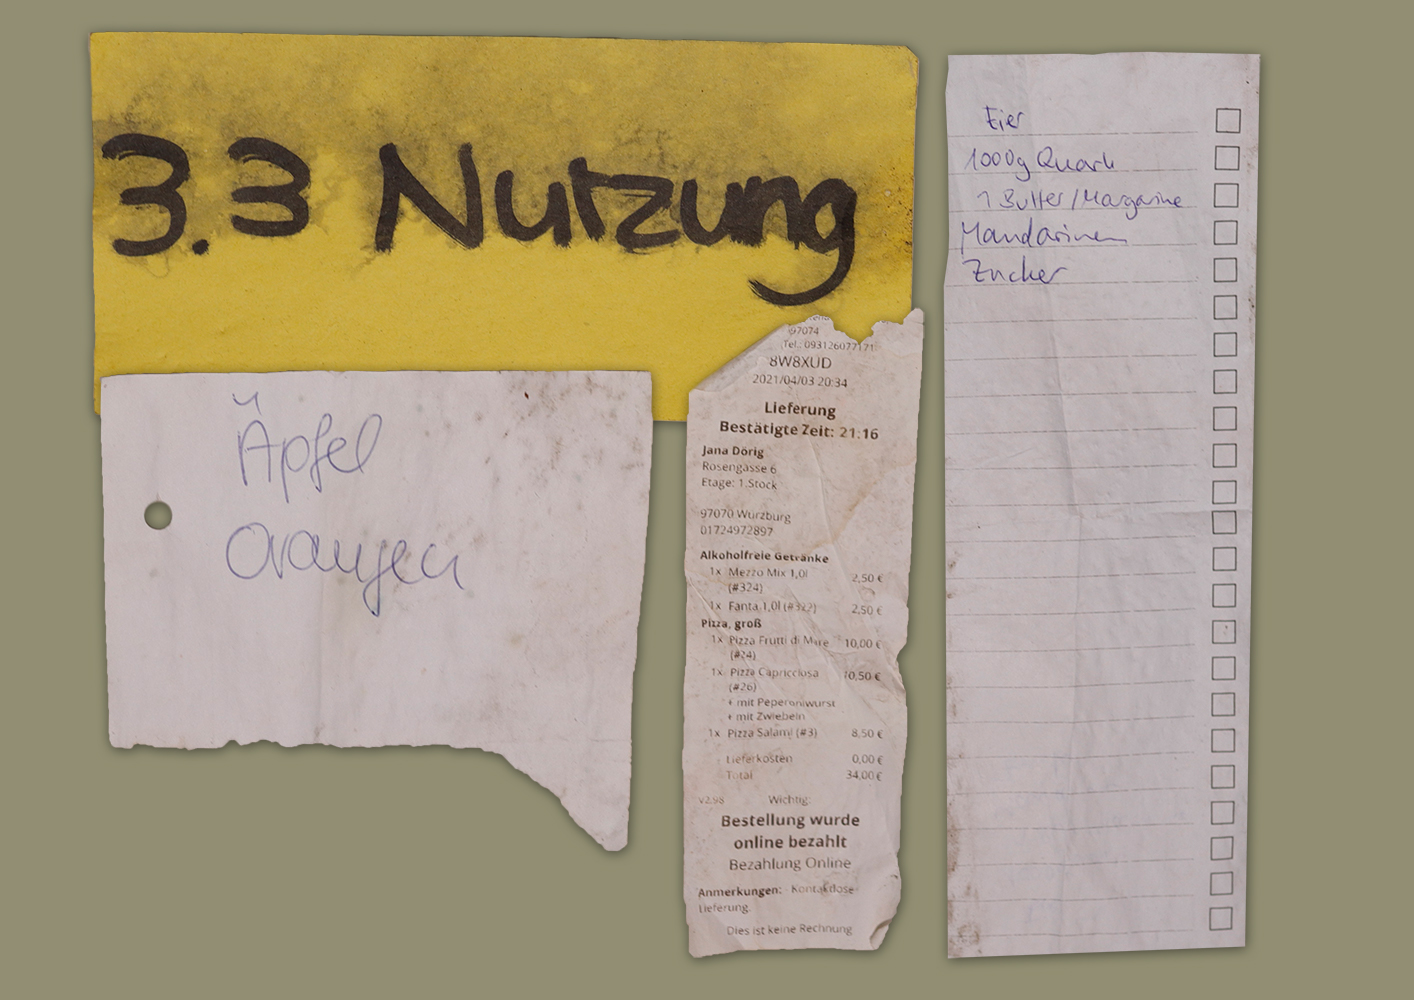 3.3 Nutzung
Äpfel
Orangen
97074
Tel.: 093126077171
8W8XUD
2021/04/03 20:34
Lieferung
Bestätigte Zeit: 21:16
Jana Dörig
Rosengasse 6
Etage: 1.Stock
97070 Würzburg
01724972897
Alkoholfreie Getränke
1x Mezzo Mix 1,0l 2,50 €
(#324)
1x Fanta 1,0l (#322) 2,50 €
Pizza, groß
1x Pizza Frutti di Mare 10,00 €
(#24)
1x Pizza Capricciosa 10,50 €
(#26)
+ mit Peperoniwurst
+ mit Zwiebeln
1x Pizza Salami (#3) 8,50 €
Lieferkosten 0,00 €
Total 34,00 €
v2.98 Wichtig:
Bestellung wurde
online bezahlt
Bezahlung Online
Anmerkungen: Kontaktlose
Lieferung.
Dies ist keine Rechnung
Eier
1000g Quark
1 Butter/Margarine
Mandarinen
Zucker